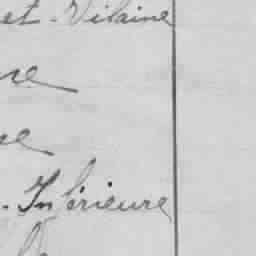 et-Vilaine
re
se
-Inférieure